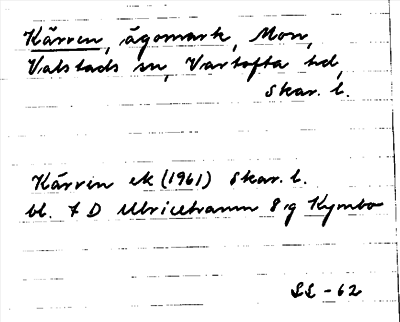 Kärren, ägomark, Mon,
Valstads sn, Vartofta hd,
Skar. l.
Kärren ek (1961) Skar. l.
bl. 7 D Ulricehamn 8 g Kymbo
SL - 62